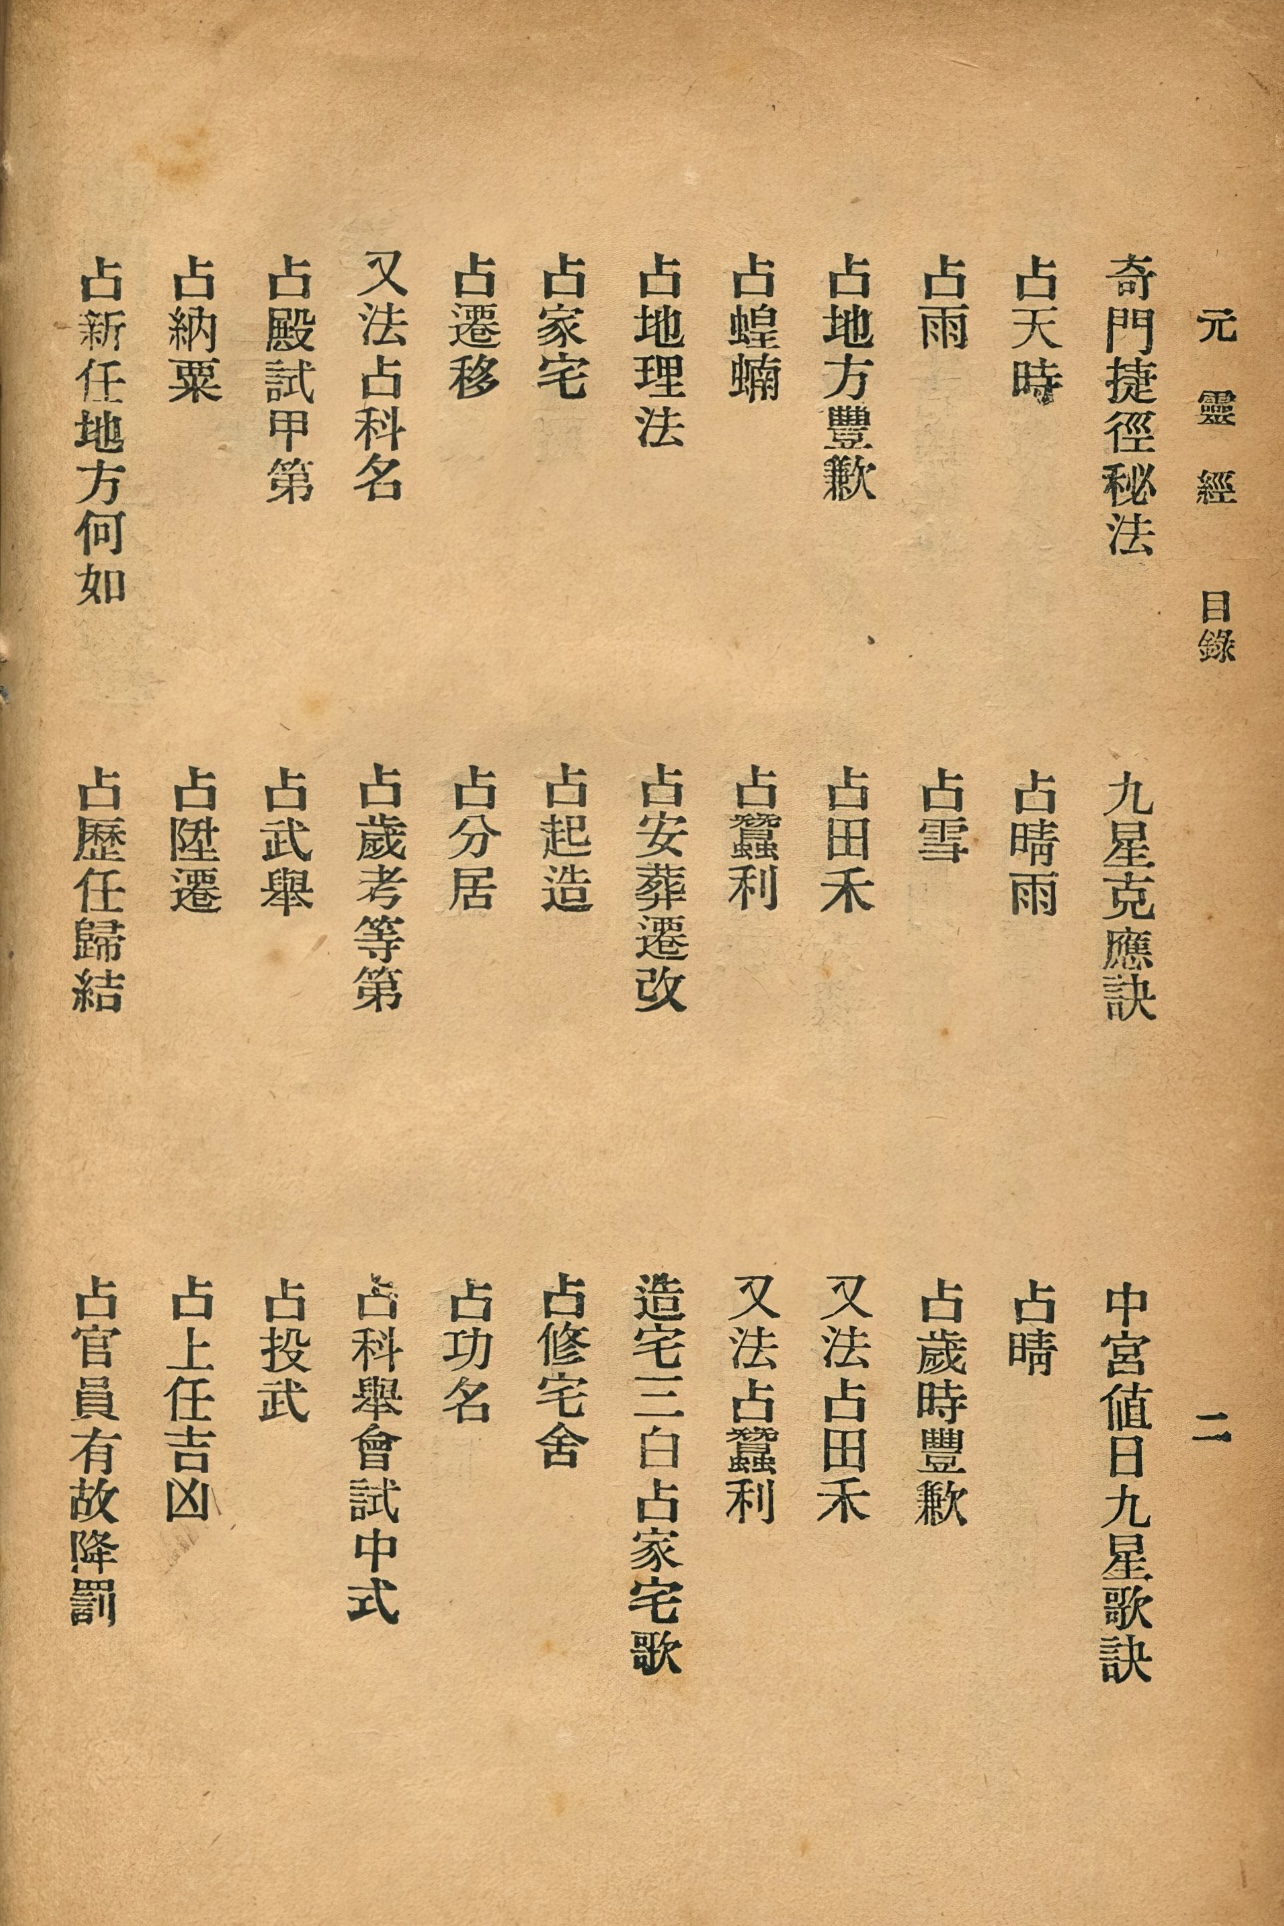 元靈經 目錄 二
奇門捷徑秘法 九星克應訣 中宮値日九星歌訣
占天時 占晴雨 占晴
占雨 占雪 占歲時豐歉
占地方豐歉 占田禾 又法占田禾
占蝗蝻 占蠶利 又法占蠶利
占地理法 占安葬遷改 造宅三白占家宅歌
占家宅 占起造 占修宅舍
占遷移 占分居 占功名
又法占科名 占歲考等第 占科舉會試中式
占殿試甲第 占武舉 占投武
占納粟 占陞遷 占上任吉凶
占新任地方何如 占歷任歸結 占官員有故降罰